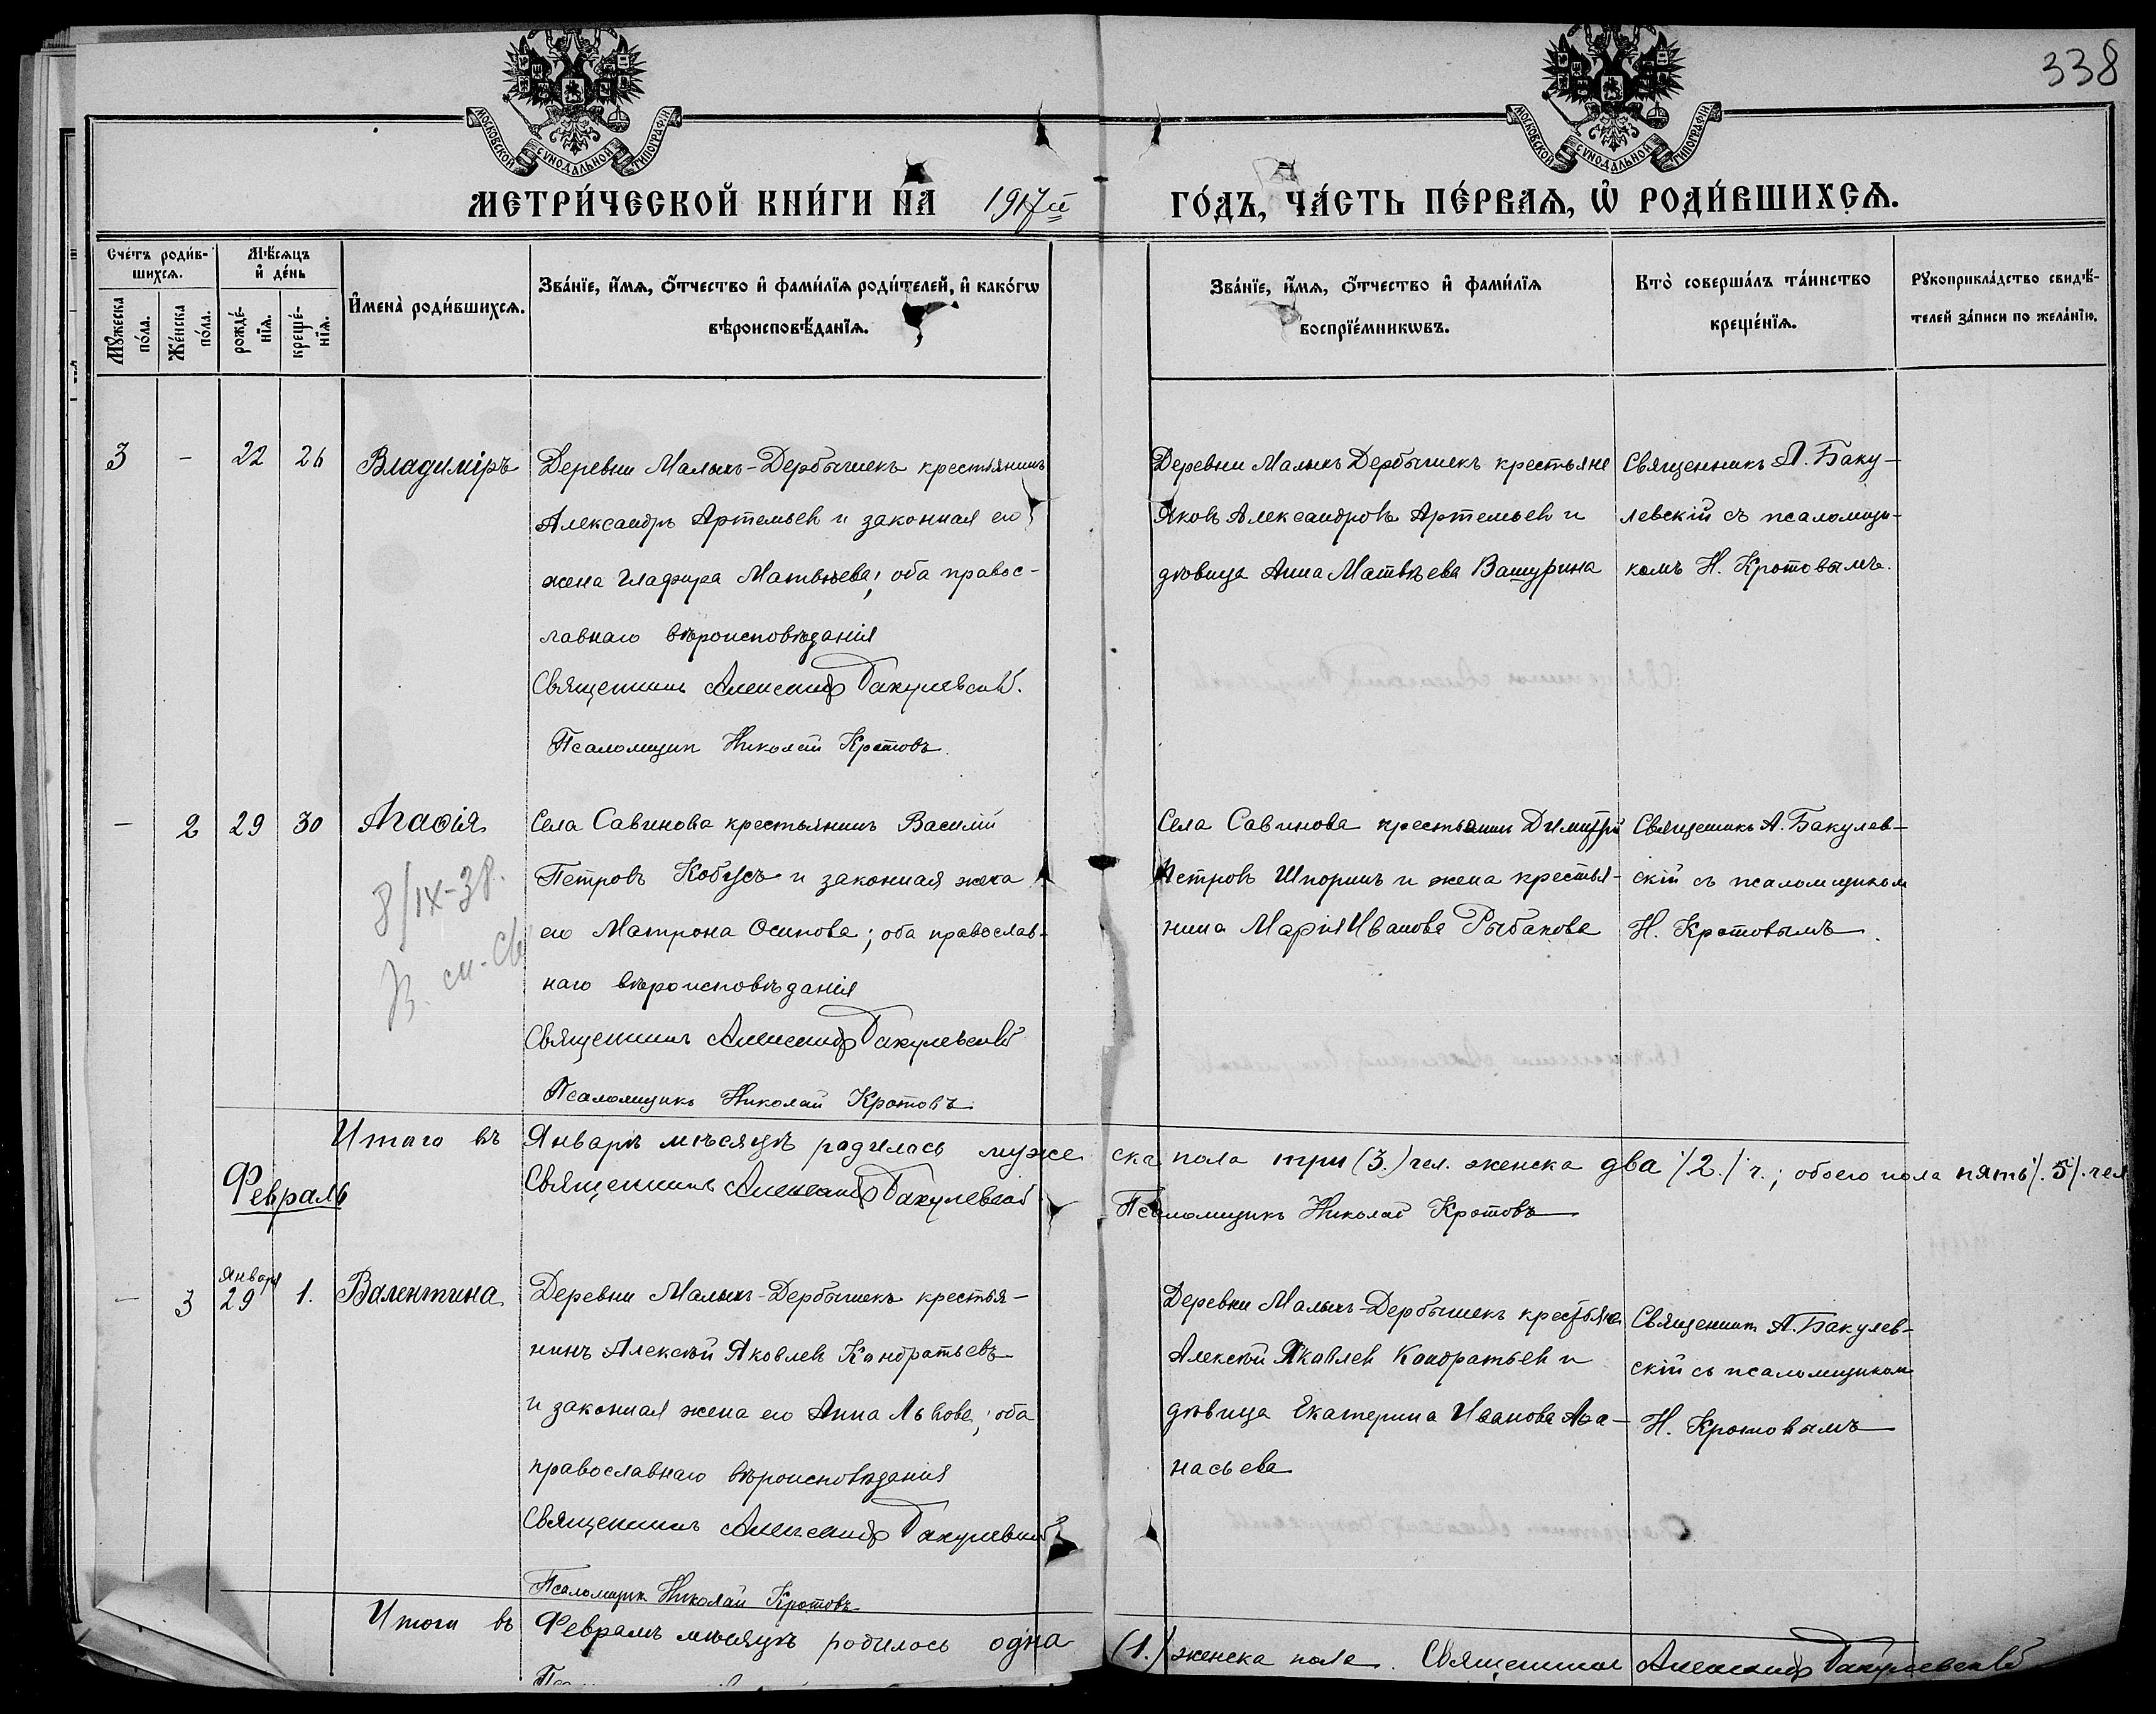 338
МОСКОВСКОЙ СУНОДАЛЬНОЙ ТИПОГРАФІИ
МОСКОВСКОЙ СУНОДАЛЬНОЙ ТИПОГРАФІИ
МЕТРИ́ЧЕСКОЙ КНИ́ГИ НА 1917й ГО́ДЪ, ЧА́СТЬ ПЕ́РВАѦ, Ѡ РОДИ́ВШИХСѦ.
Сче́тъ роди́в-
шихсѧ.
Мѣ́сѧцъ
и҆ де́нь
Мꙋ́жеска
по́ла.
Же́нска
по́ла.
рожде́-
нїѧ.
креще́-
нїѧ.
И҆мена̀ роди́вшихсѧ.
Зва́нїе, и҆́мѧ, ѻ҆́тчество и҆ фами́лїѧ роди́телей, и҆ како́гѡ
вѣроисповѣ́данїѧ.
Зва́нїе, и҆́мѧ, ѻ҆́тчество и҆ фами́лїѧ
воспрїе́мникѡвъ.
Кто̀ соверша́лъ та́инство
креще́нїѧ.
Рꙋкоприкла́дство свидѣ́-
телей за́писи по жела́нїю.
3 - 22 26 Владиміръ
Деревни Малыхъ-Дербышекъ крестьянинъ
Александръ Артемьевъ и законная его
жена Глафира Матвѣева; оба правос-
лавнаго вѣроисповѣданія
Священникъ Александръ Бакулевскій.
Псаломщикъ Николай Кротовъ.
Деревни Малыхъ Дербышекъ крестьяне
Яковъ Александровъ Артемьевъ и
дѣвица Анна Матвѣева Вашурина
Священникъ А. Баку-
левскій съ псаломщи-
комъ Н. Кротовымъ.
- 2 29 30 Агаѳія
8/IX-38.
Села Савинова крестьянинъ Василій
Петровъ Кобусъ и законная жена
его Матрона Осипова; оба православ-
наго вѣроисповѣданія
Священникъ Александръ Бакулевскій
Псаломщикъ Николай Кротовъ
Села Савинова крестьянинъ Димитрій
Петровъ Шпоринъ и жена крестья-
нина Марія Иванова Рыбакова
Священникъ А. Бакулев-
скій съ псаломщикомъ
Н. Кротовымъ.
Итого въ Январѣ мѣсяцѣ родилось муже ска пола три (3.) чел. женска два /2./ ч.; обоего пола пять /.5/. чел
Священникъ Александръ Бакулевскій
Псаломщикъ Николай Кротовъ
Февраль
- 3 Января 29 1. Валентина
Деревни Малыхъ-Дербышекъ крестья-
нинъ Алексѣй Яковлевъ Кондратьевъ
и законная жена его Анна Львова; оба
православнаго вѣроисповѣданія
Священникъ Александръ Бакулевскій
Псаломщикъ Николай Кротовъ
Деревни Малыхъ-Дербышекъ крестьяне
Алексѣй Яковлевъ Кондратьевъ и
дѣвица Екатерина Иванова Аѳа-
насьева
Священникъ А. Бакулев-
скій съ псаломщикомъ
Н. Кротовымъ
Итого въ Февралѣ мѣсяцѣ родилось одна (1.) женска пола. Священникъ Александръ Бакулевскій